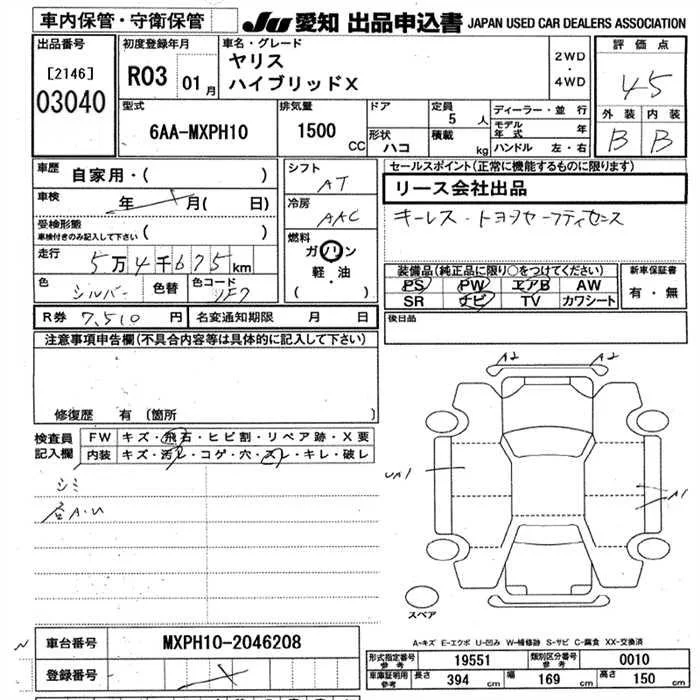 車内保管・守衛保管
JU 愛知 出品申込書 JAPAN USED CAR DEALERS ASSOCIATION
出品番号
[2146]
03040
初度登録年月
R03 01月
車名・グレード
ヤリス
ハイブリッドX
2WD
・
4WD
評価点
45
外装 内装
B B
型式
6AA-MXPH10
排気量
1500
CC
ドア
形状
ハコ
定員
5 人
積載
kg
ディーラー・並行
モデル年式 年
ハンドル 左・右
車歴
自家用・( )
車検
年 月( 日)
受検形態
車検付きのみ記入して下さい ( )
走行
5万4千675km
色
シルバー
色替
色コード
1F7
シフト
AT
冷房
AAC
燃料
ガソリン
軽・油
( )
セールスポイント(正常に機能するものに限ります)
リース会社出品
キーレス・トヨタセーフティセンス
装備品(純正品に限り○をつけてください)
PS PW エアB AW
SR ナビ TV カワシート
新車保証書
有・無
R券 7,510 円
名変通知期限 月 日
後日品
注意事項申告欄(不具合内容等は具体的に記入して下さい)
修復歴 有 〔箇所 〕
検査員
記入欄
FW キズ・飛石・ヒビ割・リペア跡・X要
内装 キズ・汚レ・コゲ・穴・スレ・キレ・破レ
シミ
A2 A2
A1
スペア
A-キズ E-エクボ U-凹み W-補修跡 S-サビ C-腐食 XX-交換済
車台番号
MXPH10-2046208
登録番号
形式指定番号
参考
19551
類別区分番号
参考
0010
車庫証明用
参考
長さ 394 cm
幅 169 cm
高さ 150 cm